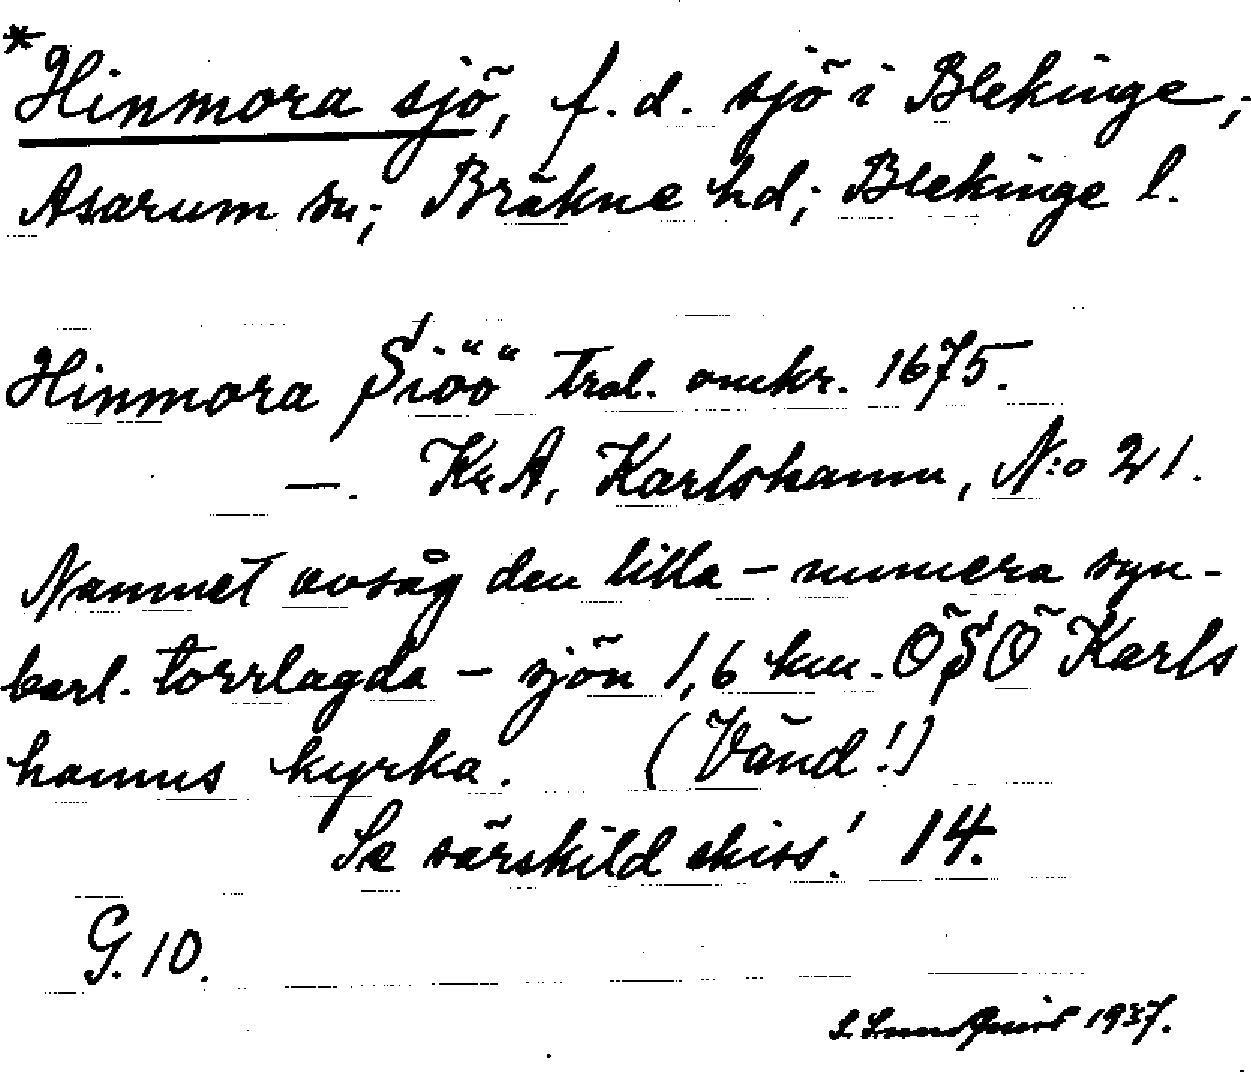 *Hinmora sjö, f.d. sjö i Blekinge,
Asarum sn; Bräkne hd; Blekinge l.
Hinmora Siöö Trol. omkr. 1675.
—. KrA, Karlshamn, N:o 21.
Namnet avsåg den lilla – numera syn-
barl. torrlagda – sjön 1,6 km. ÖSÖ Karls
hamns kyrka. (Vänd!)
Se särskild skiss! 14.
G. 10.
1937.